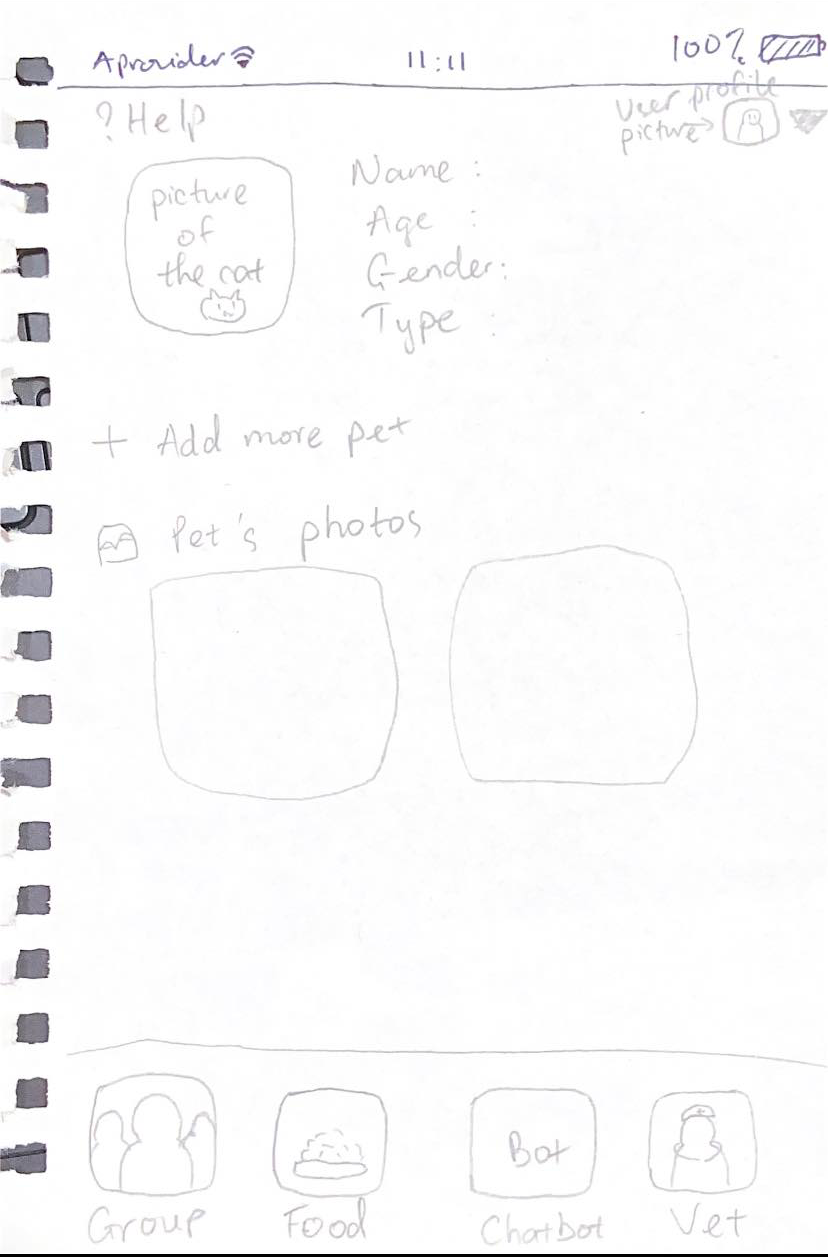 Aprovider
11:11
100%
? Help
User profile
picture
picture
of
the cat
Name :
Age :
Gender:
Type :
+ Add more pet
Pet's photos
Bot
Group
Food
Chatbot
Vet